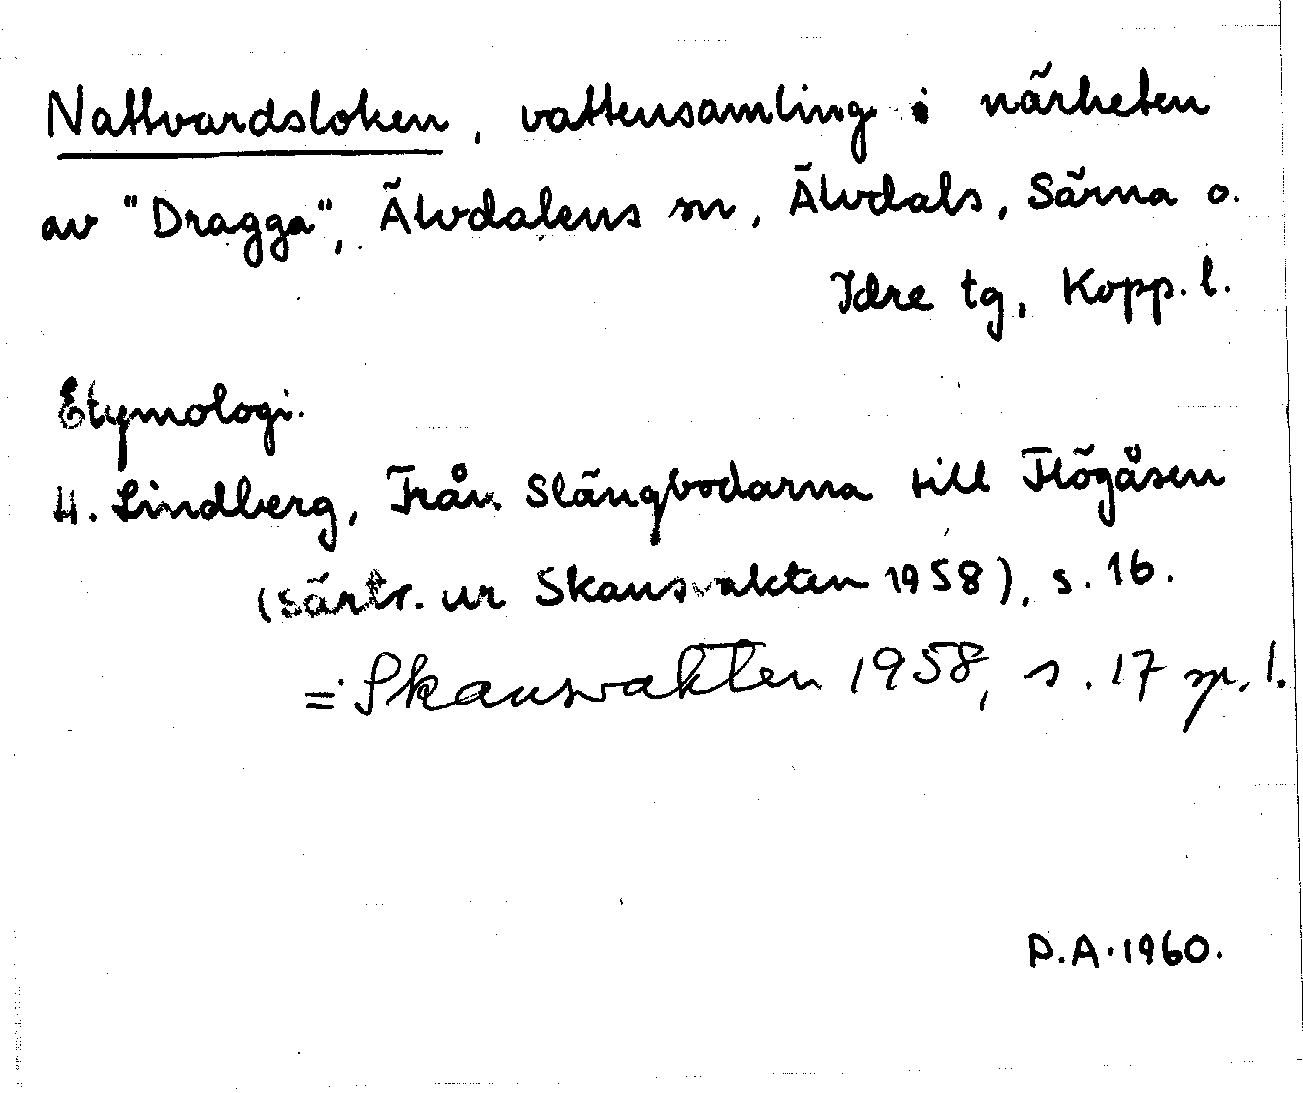 Nattvardsloken, vattensamling i närheten
av "Dragga", Älvdalens sn, Älvdals, Särna o.
Idre tg, Kopp. l.
Etymologi.
H. Lindberg, Från Slängbodarna till Flögåsen
(särtr. ur Skansvakten 1958), s. 16.
= Skansvakten 1958, s. 17 sp. 1.
D.A. 1960.